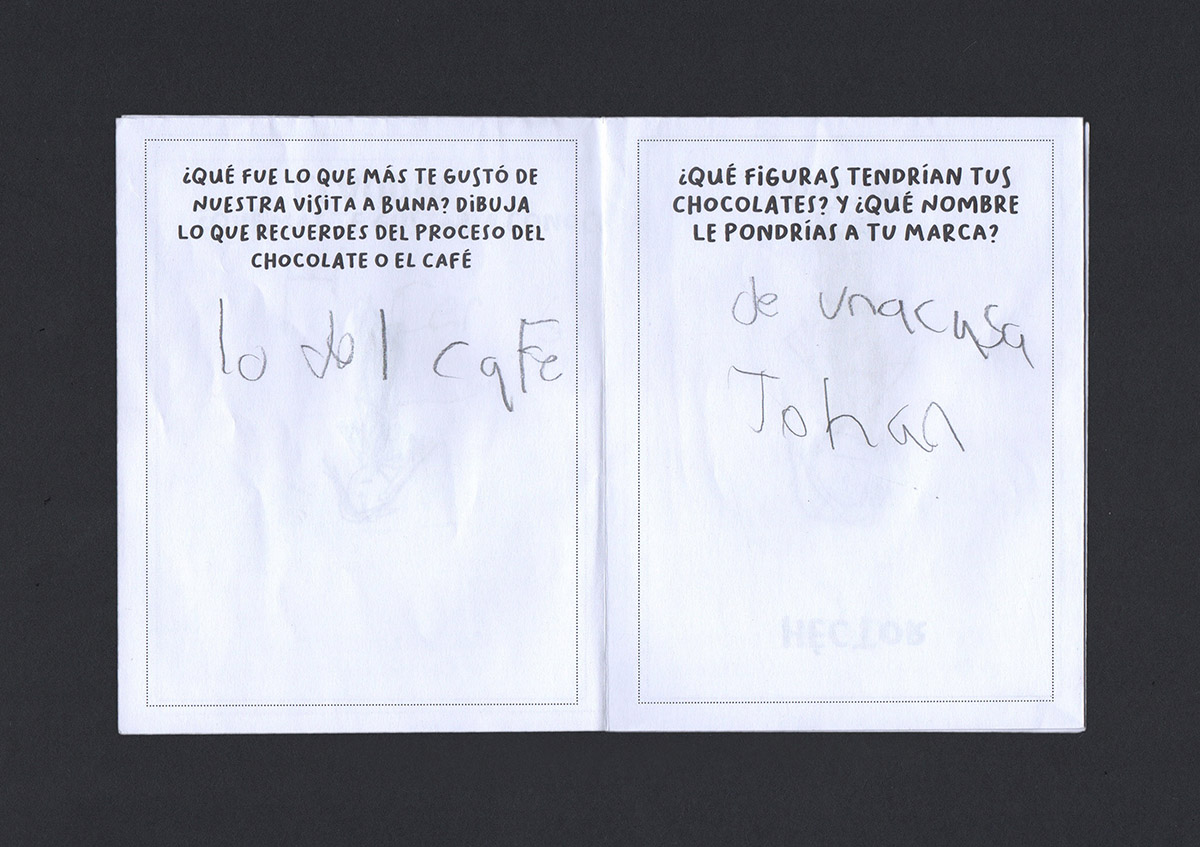 ¿QUÉ FUE LO QUE MÁS TE GUSTÓ DE
NUESTRA VISITA A BUNA? DIBUJA
LO QUE RECUERDES DEL PROCESO DEL
CHOCOLATE O EL CAFÉ
lo del cafe
¿QUÉ FIGURAS TENDRÍAN TUS
CHOCOLATES? Y ¿QUÉ NOMBRE
LE PONDRÍAS A TU MARCA?
de unacasa
Johan
HÉCTOR